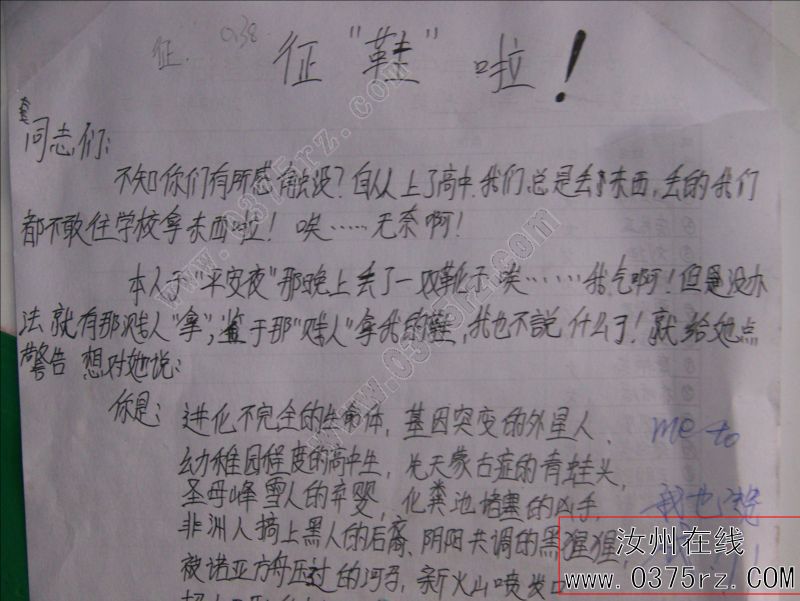 征. 038.
征"鞋"啦!
同志们:
不知你们有所感触没?自从上了高中.我们总是丢了东西,丢的我们
都不敢往学校拿东西啦!唉……无奈啊!
本人于"平安夜"那晚上丢了一双靴子唉……我气啊!但是没办
法就有那贱人"拿",鉴于那"贱人"拿我的鞋,我也不说什么了!就给她点
警告 想对她说:
你是:进化不完全的生命体,基因突变的外星人、
幼稚园程度的高中生,先天蒙古症的青蛙头,
圣母峰雪人的弃婴,化粪池堵塞的凶手,
非洲人搞上黑人的后裔、阴阳共调的黑猩猩,
被诺亚方舟压过的河马,新火山喷发口
me to
我也
汝州在线
www.0375rz.COM
www.0375rz.com
www.0375rz.com